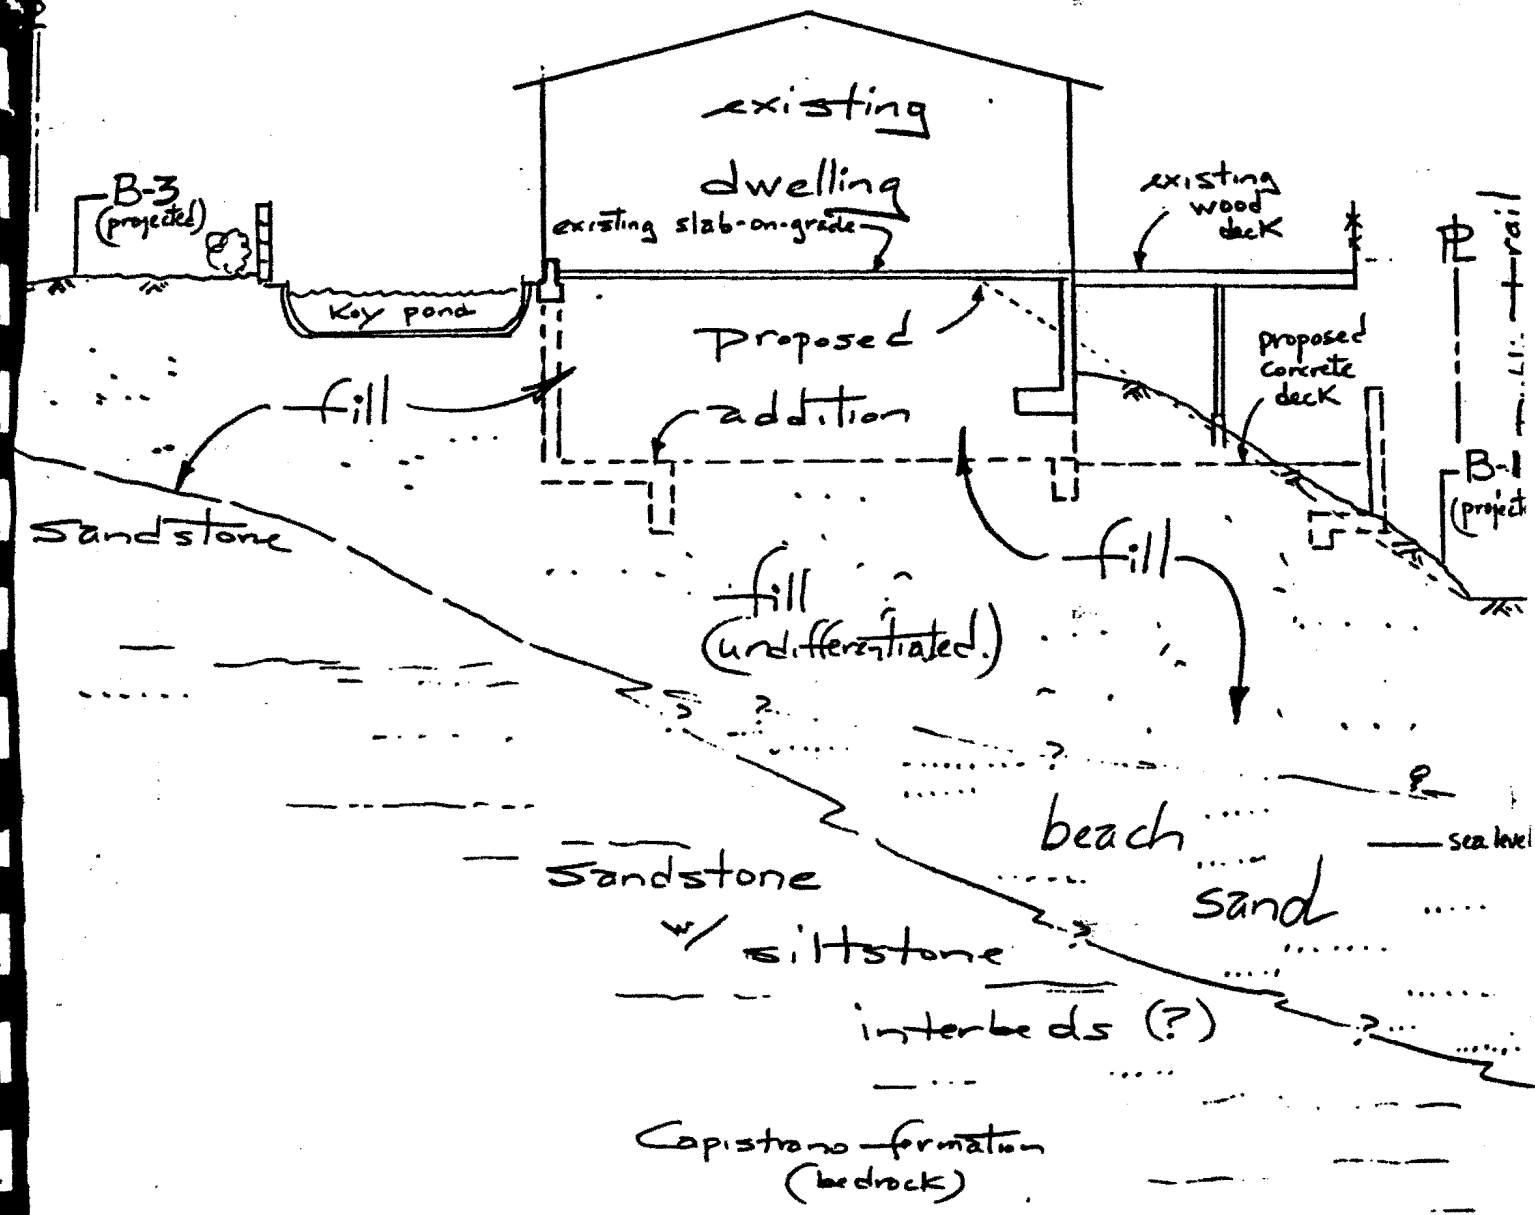 existing
dwelling
existing slab-on-grade
B-3
(projected)
existing
wood
deck
PL
trail
Koy pond
proposed
addition
proposed
concrete
deck
fill
B-1
(project
Sandstone
fill
fill
(undifferentiated.)
?
?
?
?
beach
sand
sea level
Sandstone
w/
siltstone
?
interbeds (?)
?
Capistrano formation
(bedrock)